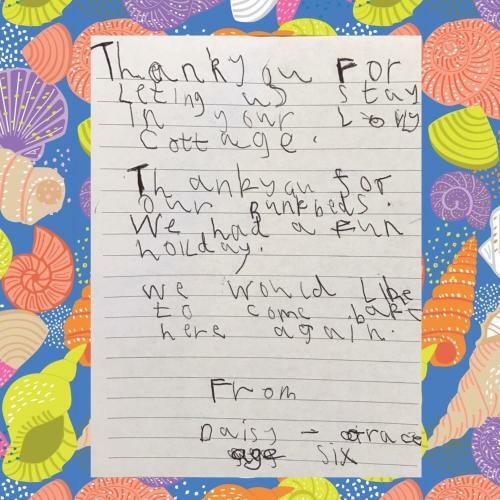 Thankyou For
Leting us stay
in your Lovly
Cottage.
Thankyou for
our Bunkbeds.
We had a Fun
holiday.
we would Like
to come back
here again.
From
Daisy - Grace
age six